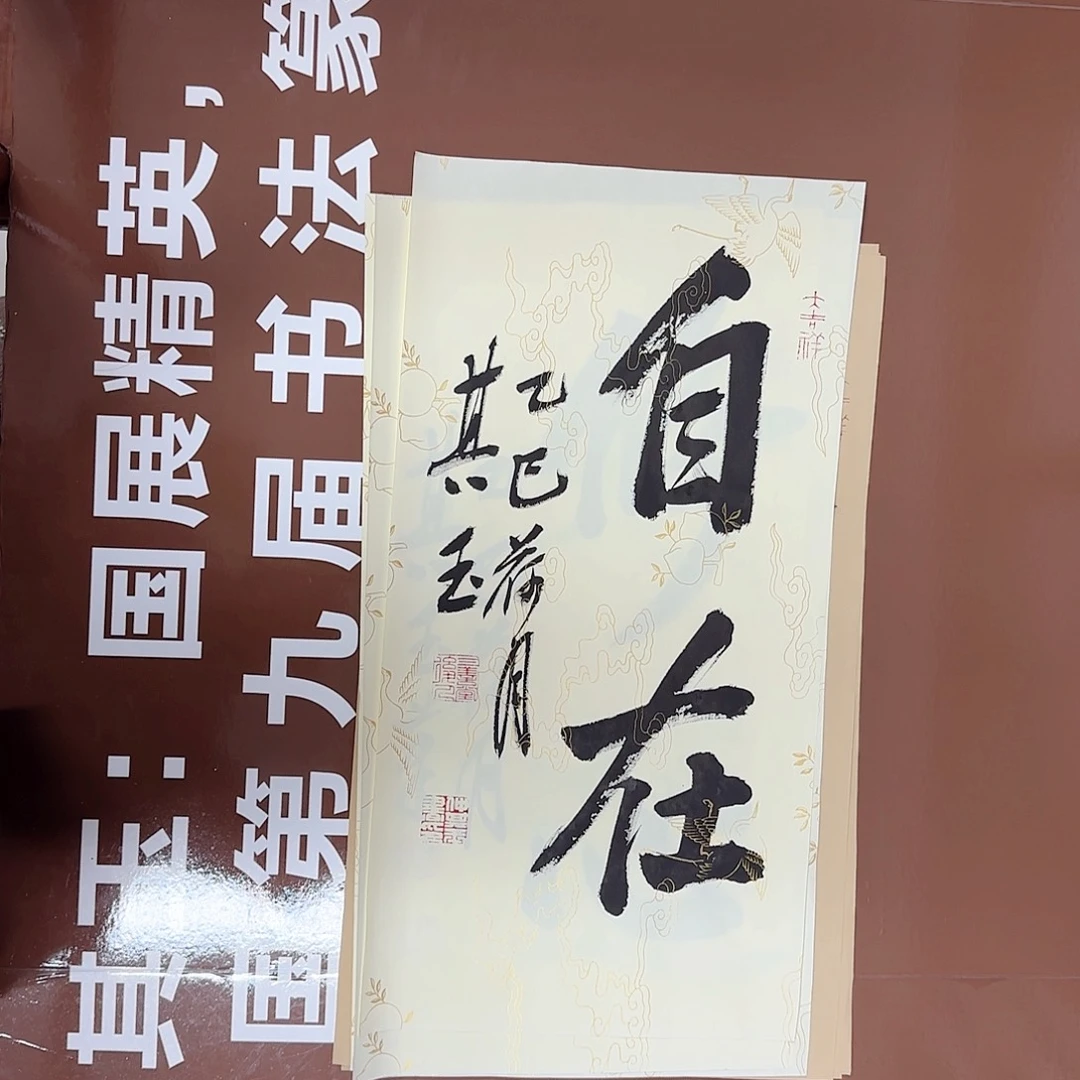 自在
乙巳荷月
其玉
大吉祥
其玉：国展精英，
国第九届书法篆